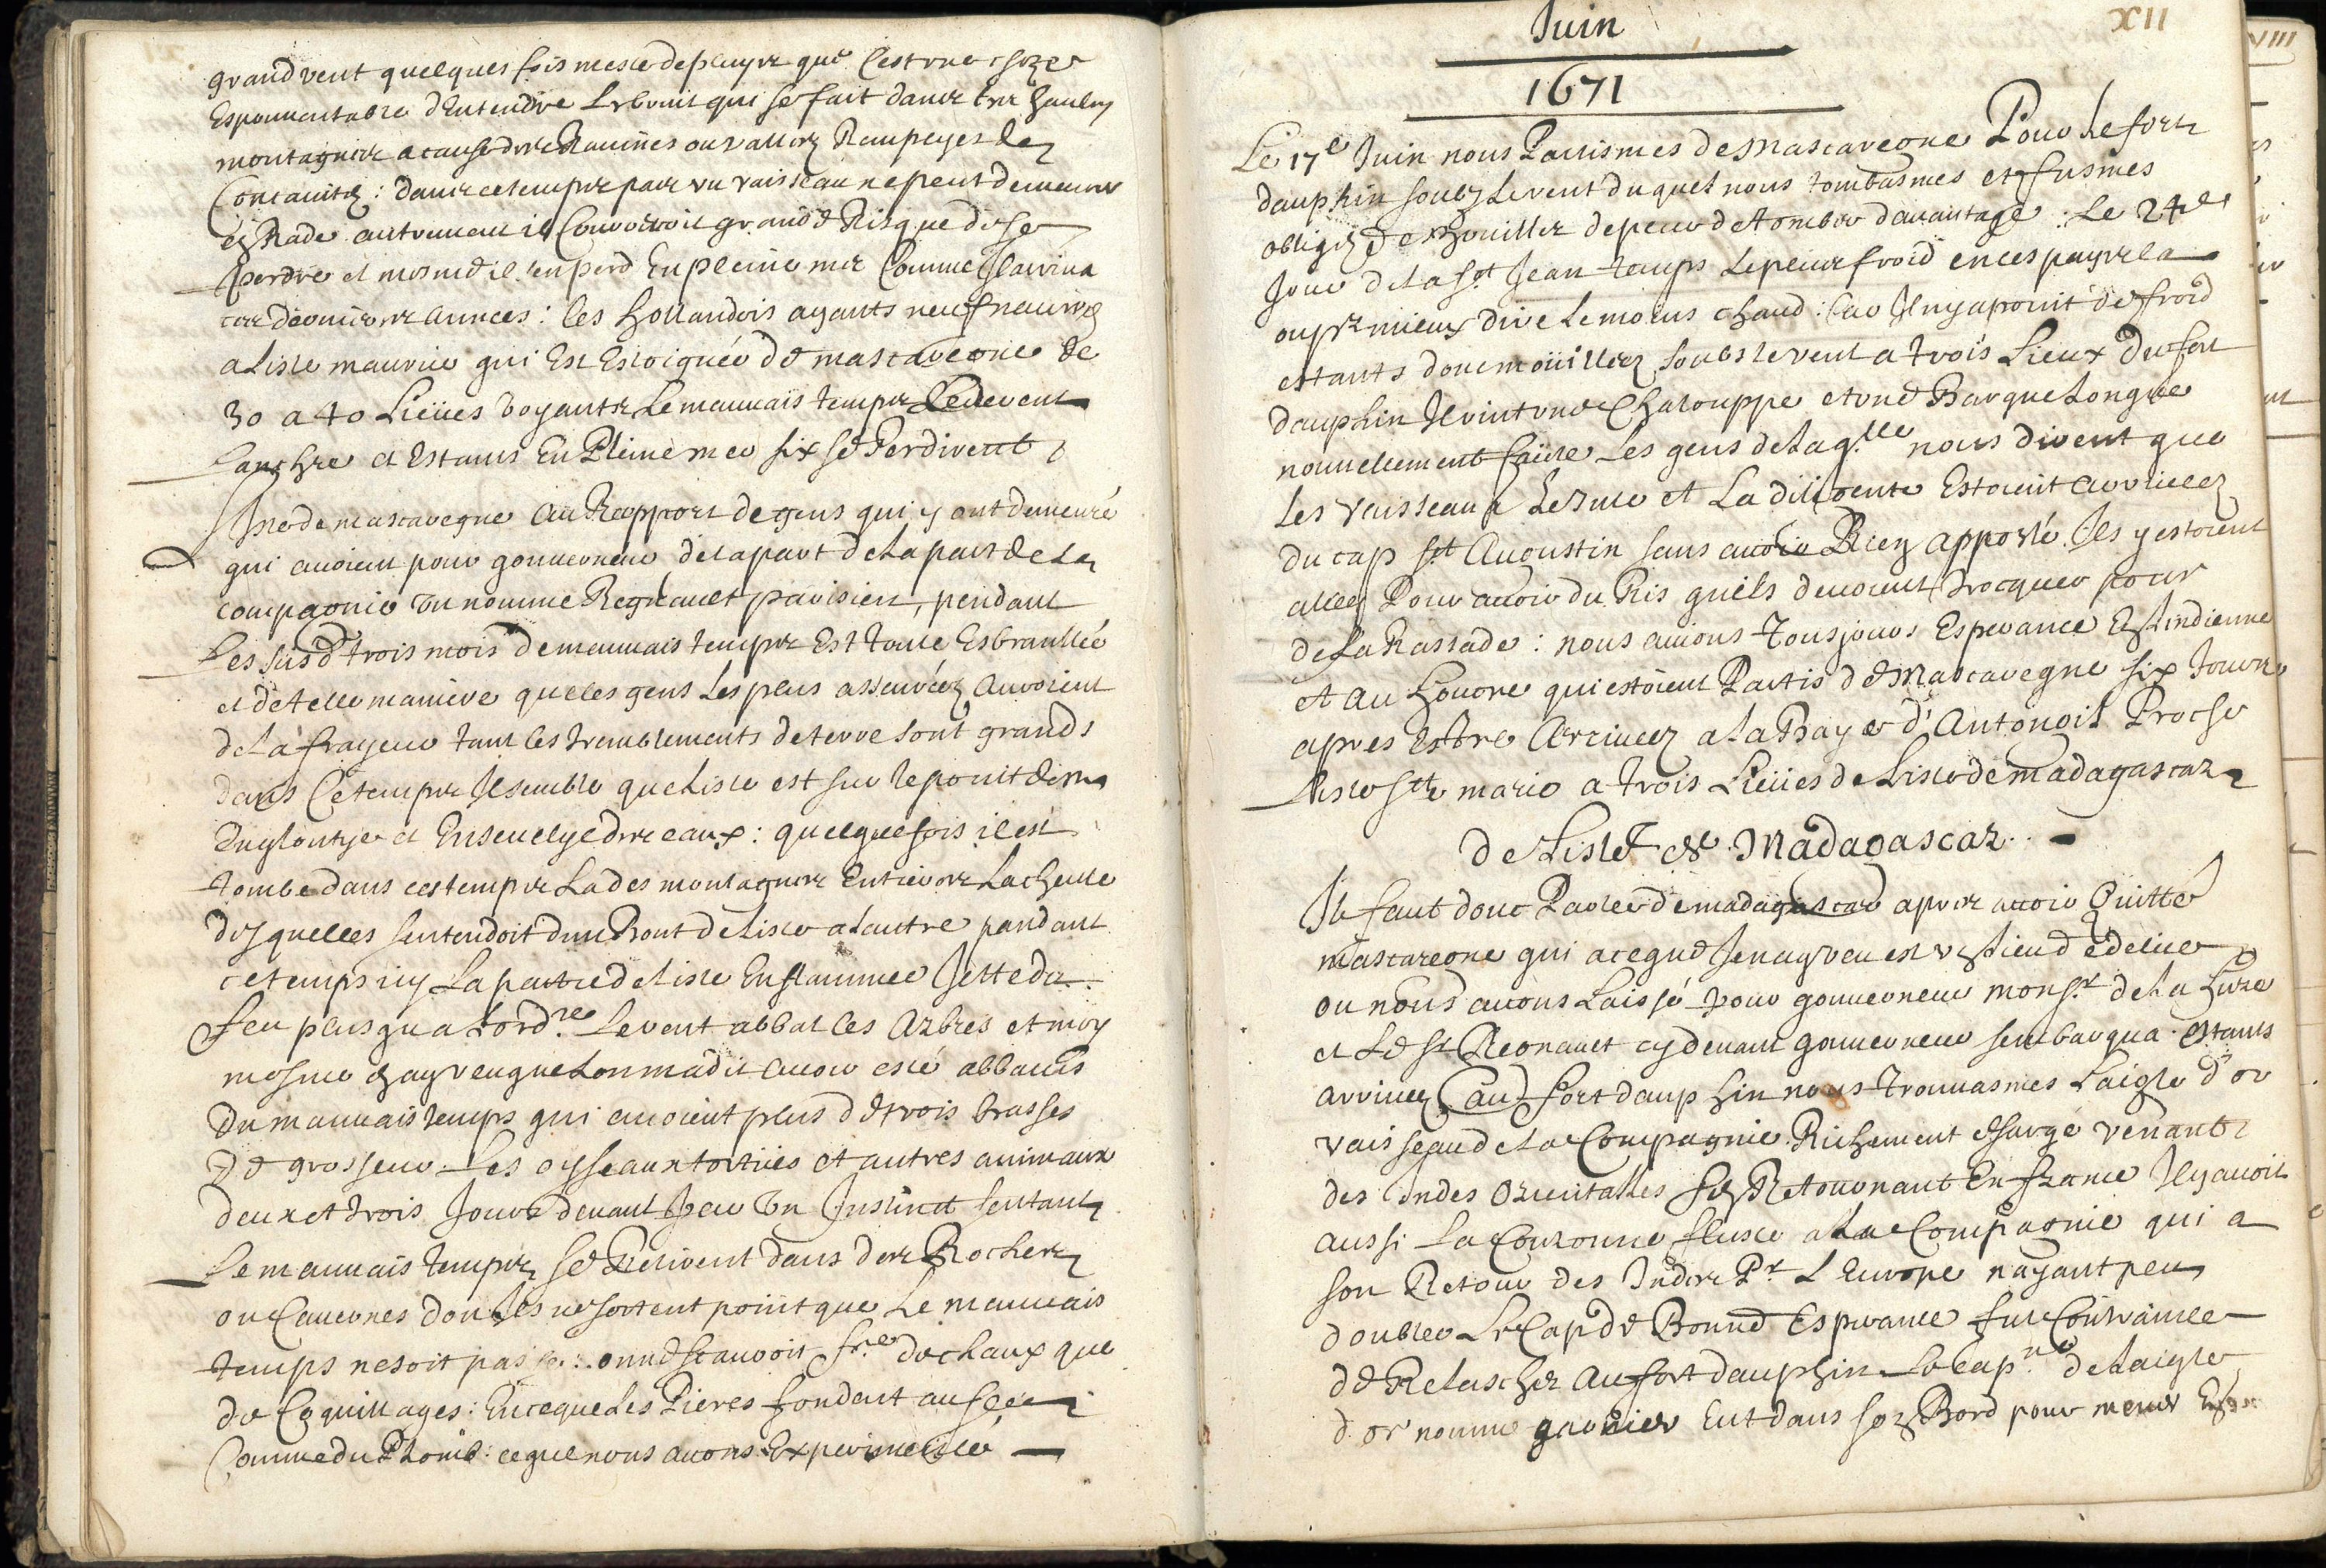 grand vent quelques fois mesle de pluyes que C'est une choze
Espouuentable d'Entendre Le bruit qui se fait dans les haultes
montagnes a cause des Ravines ou vallez Rempeyes de
Concauitez : dans ce temps par un vaisseau ne peut demeurer
en Rade autrement il Courreroit grande Risque de se
perdre et mesme il sen perd En pleine mer Comme Il arriua
ces dernieres années : les hollandois ayants neuf nauires
a Lisle maurice qui Est Esloignée de mascaregne de
30 a 40 Lieües voyants Le mauuais temps Leuerent
Lanchre et Estants En Pleine mer six se Perdirent
Isle de mascaregne Au Rapport de gens qui y ont demeuré
qui auoient pour gouuerneur de la part de La part de La
compagnie un nomme Regnault parisien, pendant
Les susd. trois mois de mauuais temps Est toute Esbranllée
et de telle maniere que les gens Les plus asseurez Auroient
de La frayeur tant les tremblements de terre sont grands
dans Ce temps Il semble que Lisle est sur le point destre
Engloutye et Enseuelye des eaux : quelquefois il est
tombe dans ces temps La des montagnes Entieres La cheute
desquelles sentendoit d'un Bout de Lisle a Lautre pendant
ce temps icy La partie de Lisle Enflammee Jette du
feu plus qua Lord.re Le vent abbat les Arbres et moy
mesme Jay veu que Lon ma dit auoir esté abbatus
du mauuais temps qui auoient plus de trois brasses
De grosseur. Les oysseaux tortües et autres animaux
deux et trois Jours deuant par un Instinct sentants
Le mauuais temps se Retirent dans des Rochers
ou Cauernes don Ils ne sortent point que Le mauuais
temps ne soit passé : on ne scauroit f.re de chaux que
de Coquillages : En ce que Les Pieres fondent au feu
Comme du Plomb : ce que nous auons Experimenté
XII
VIII
Juin
1671
Le 17e Juin nous Partismes de Mascaregne Pour Le fort
dauphin soubz Le vent duquel nous tombasmes et fusmes
obligez de Mouiller de peur de tomber dauantage : Le 24e
Jour de la St Jean temps Le plus froid en ces pays la
ou pr mieux dire Le moins chaud : Car Il ny a point de froid
estants donc moüillez soubs le vent a trois Lieux du fort
dauphin Il vint une Chalouppe et une Barque Longue
nouuellement faicte Les gens de laq.lle nous dirent que
Les vaisseaux Le Jule et La diligente Estoient arriuez
du cap St Augustin sans auoir Rien apporté. Ils y estoient
allez Pour auoir du Ris quils deuoient trocquer pour
de La Rassade : nous auions tousjours Esperance E Lindienne
et au Houcre qui estoient Partis de Mascaregne six Jours
apres Estre Arriuez a la Baye d'Antongil Proche
Lisle Ste marie a trois Lieües de Lisle de madagascar
de Lisle de Madagascar
Il faut donc Parler de madagascar apres auoir Quitté
mascaregne qui a ce que Jen ay veu est un Lieu de delice
ou nous auons Laissé pour gouuerneur monsr. de La hure
et Le Sr Regnault cy deuant gouuerneur sembarqua. Estants
arriuez au fort dauphin nous trouuasmes Laigle d'or
vaisseau de La Compagnie Richement charge venant
des Indes Orientalles sen Retournant En france Il y auoit
aussi La Couronne fluste a La Compagnie qui a
son Retour des Indes Pr L'Europe nayant peu
doubler Le Cap de Bonne Esperance fut Contrainte
de Relascher Au fort dauphin Le Cap.ne de Laigle
d'or nomme garnier Eut dans son Bord pour mener En